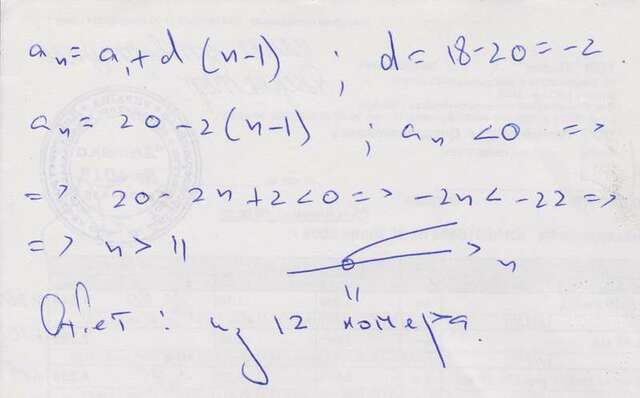 aₙ = a₁ + d (n-1) ; d = 18-20 = -2
aₙ = 20 - 2(n-1) ; aₙ < 0 =>
=> 20 - 2n + 2 < 0 => -2n < -22 =>
=> n > 11
n
11
Ответ: из 12 номера